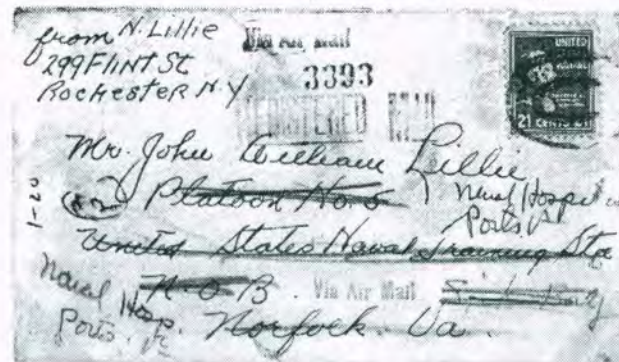 from N. Lillie
299 FLINT St
Rochester N.Y
Via Air Mail
3393
REGISTERED
UNITED
21 CENTS 21
Mr. John William Lillie
Platoon No. 5
Naval Hospital
Ports Va
1-20
United States Naval Training Sta
N.O B. Via Air Mail
Naval Hosp.
Ports. Va
Norfock. Va.